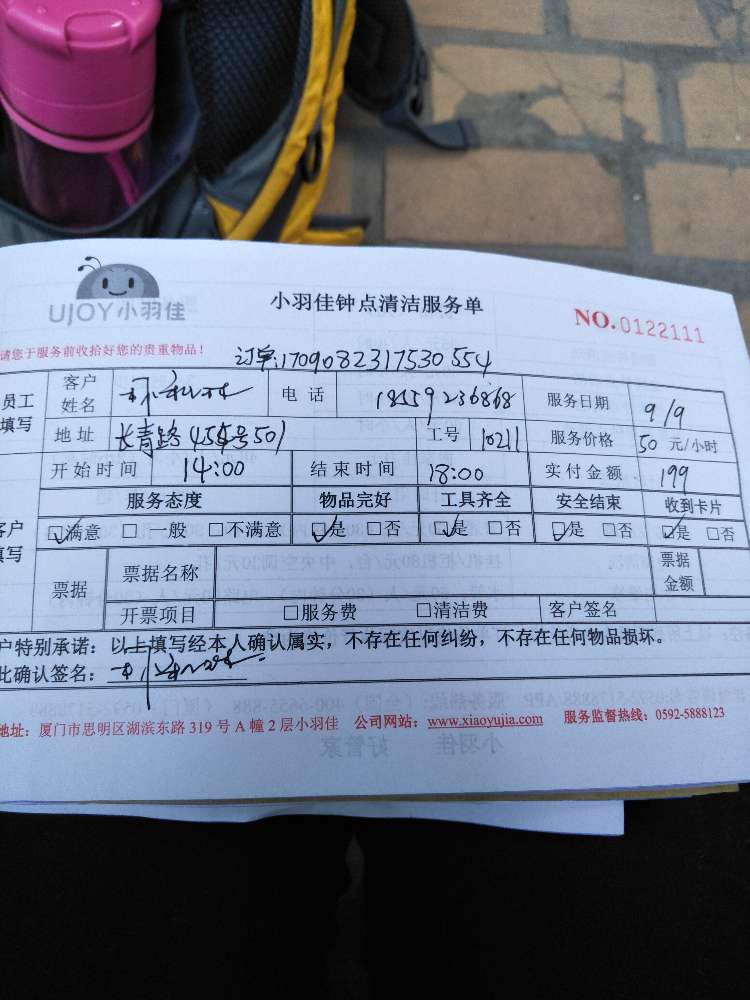 UJOY小羽佳
小羽佳钟点清洁服务单
NO.0122111
请您于服务前收拾好您的贵重物品！
订单:1709082317530554
员工填写
客户姓名
电话 18559236868
服务日期 9/9
地址 长青路455号501
工号 10211
服务价格 50 元/小时
开始时间 14:00
结束时间 18:00
实付金额 199
服务态度 物品完好 工具齐全 安全结束 收到卡片
客户填写
☑满意 □一般 □不满意 ☑是 □否 ☑是 □否 ☑是 □否 ☑是 □否
票据 票据名称 票据金额
开票项目 □服务费 □清洁费 客户签名
户特别承诺：以上填写经本人确认属实，不存在任何纠纷，不存在任何物品损坏。
此确认签名：
地址：厦门市思明区湖滨东路 319 号 A 幢 2 层小羽佳 公司网站：www.xiaoyujia.com 服务监督热线：0592-5888123